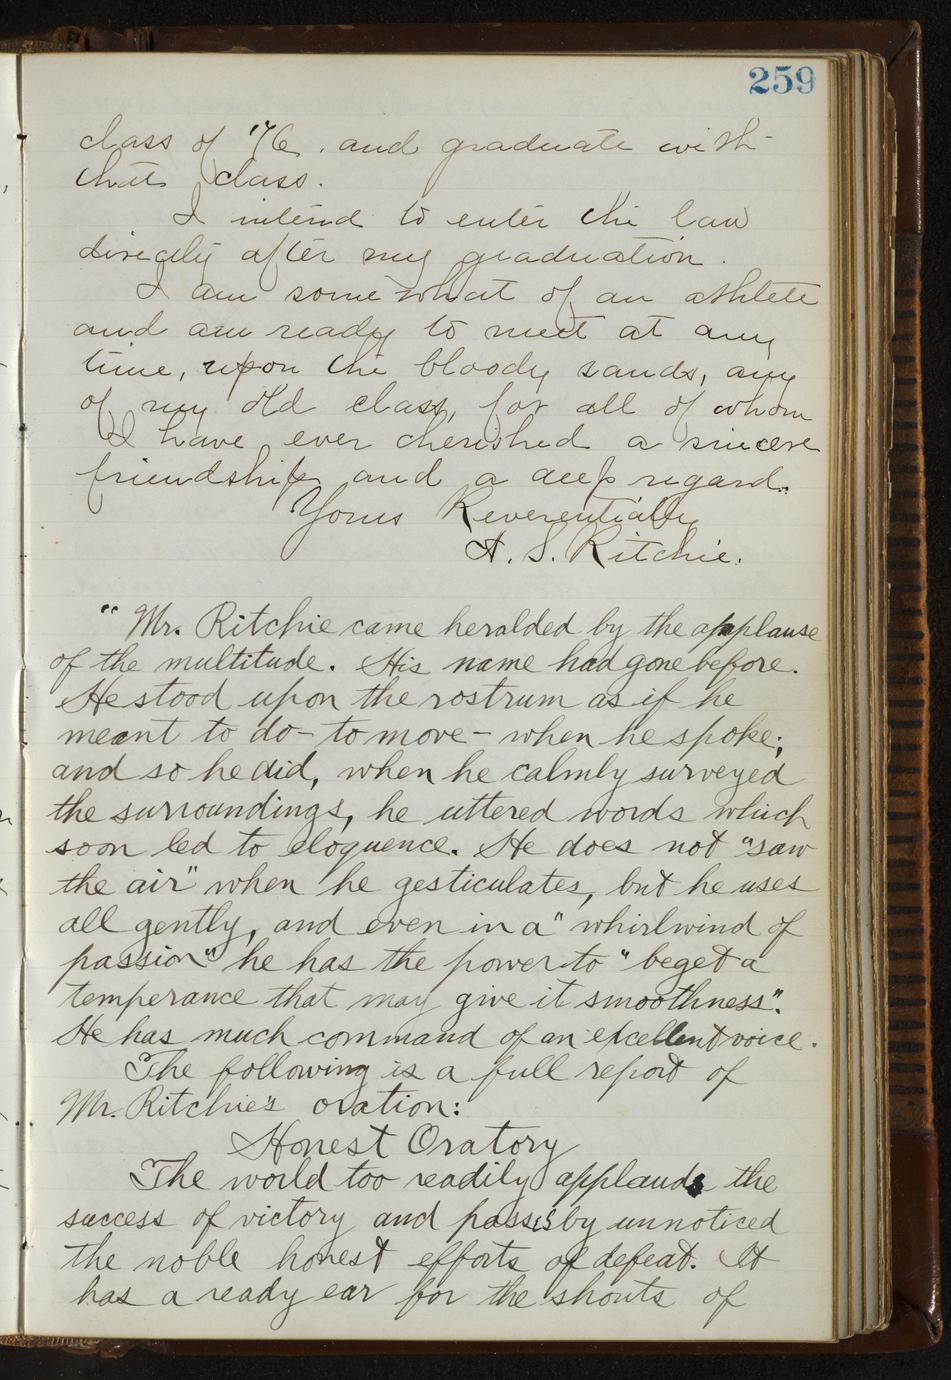 259
class of '76. and graduate with
that class.
I intend to enter the law
directly after my graduation.
I am somewhat of an athlete
and am ready to meet at any
time, upon the bloody sands, any
of my old class, for all of whom
I have ever cherished a sincere
friendship and a deep regard.
Yours Reverentially
A. S. Ritchie.
" Mr. Ritchie came heralded by the applause
of the multitude. His name had gone before.
He stood upon the rostrum as if he
meant to do - to move - when he spoke;
and so he did, when he calmly surveyed
the surroundings, he uttered words which
soon led to eloquence. He does not "saw
the air" when he gesticulates, but he uses
all gently, and even in a "whirlwind of
passion" he has the power to "beget a
temperance that may give it smoothness".
He has much command of an excellent voice.
The following is a full report of
Mr. Ritchie's oration:
Honest Oratory
The world too readily applauds the
success of victory and passes by unnoticed
the noble honest efforts of defeat. It
has a ready ear for the shouts of